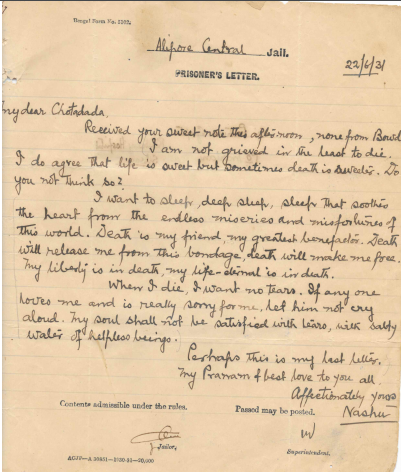 Bengal Form No. 5102.
Alipore Central Jail.
PRISONER'S LETTER.
22/6/31
My dear Chotadada.
Received your sweet note this afternoon, none from Bowdi
I am not grieved in the least to die.
I do agree that life is sweet but sometimes death is sweeter. Do
you not think so?
I want to sleep, deep sleep, sleep that soothes
the heart from the endless miseries and misfortunes of
this world. Death is my friend, my greatest benefactor. Death
will release me from this bondage, death will make me free.
My liberty is in death, my life-eternal is in death.
When I die, I want no tears. If any one
loves me and is really sorry for me, let him not cry
aloud. My soul shall not be satisfied with tears, with salty
water of helpless beings.
Perhaps this is my last letter.
My Pranam & best love to you all.
Affectionately yours
Nashu
Contents admissible under the rules.
Passed may be posted.
Jailor,
Superintendent.